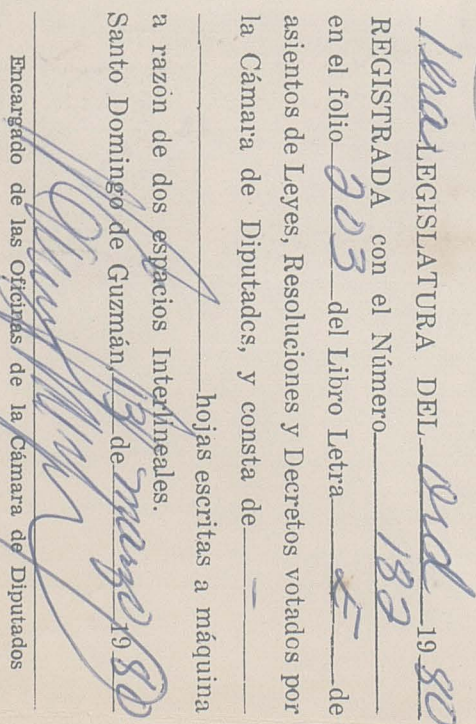 1era LEGISLATURA DEL Ord 1980
REGISTRADA con el Número 182
en el folio 203 del Libro Letra de
asientos de Leyes, Resoluciones y Decretos votados por
la Cámara de Diputados, y consta de —
hojas escritas a máquina
a razón de dos espacios Interlineales.
Santo Domingo de Guzmán, 13 de marzo 1980
Encargado de las Oficinas de la Cámara de Diputados